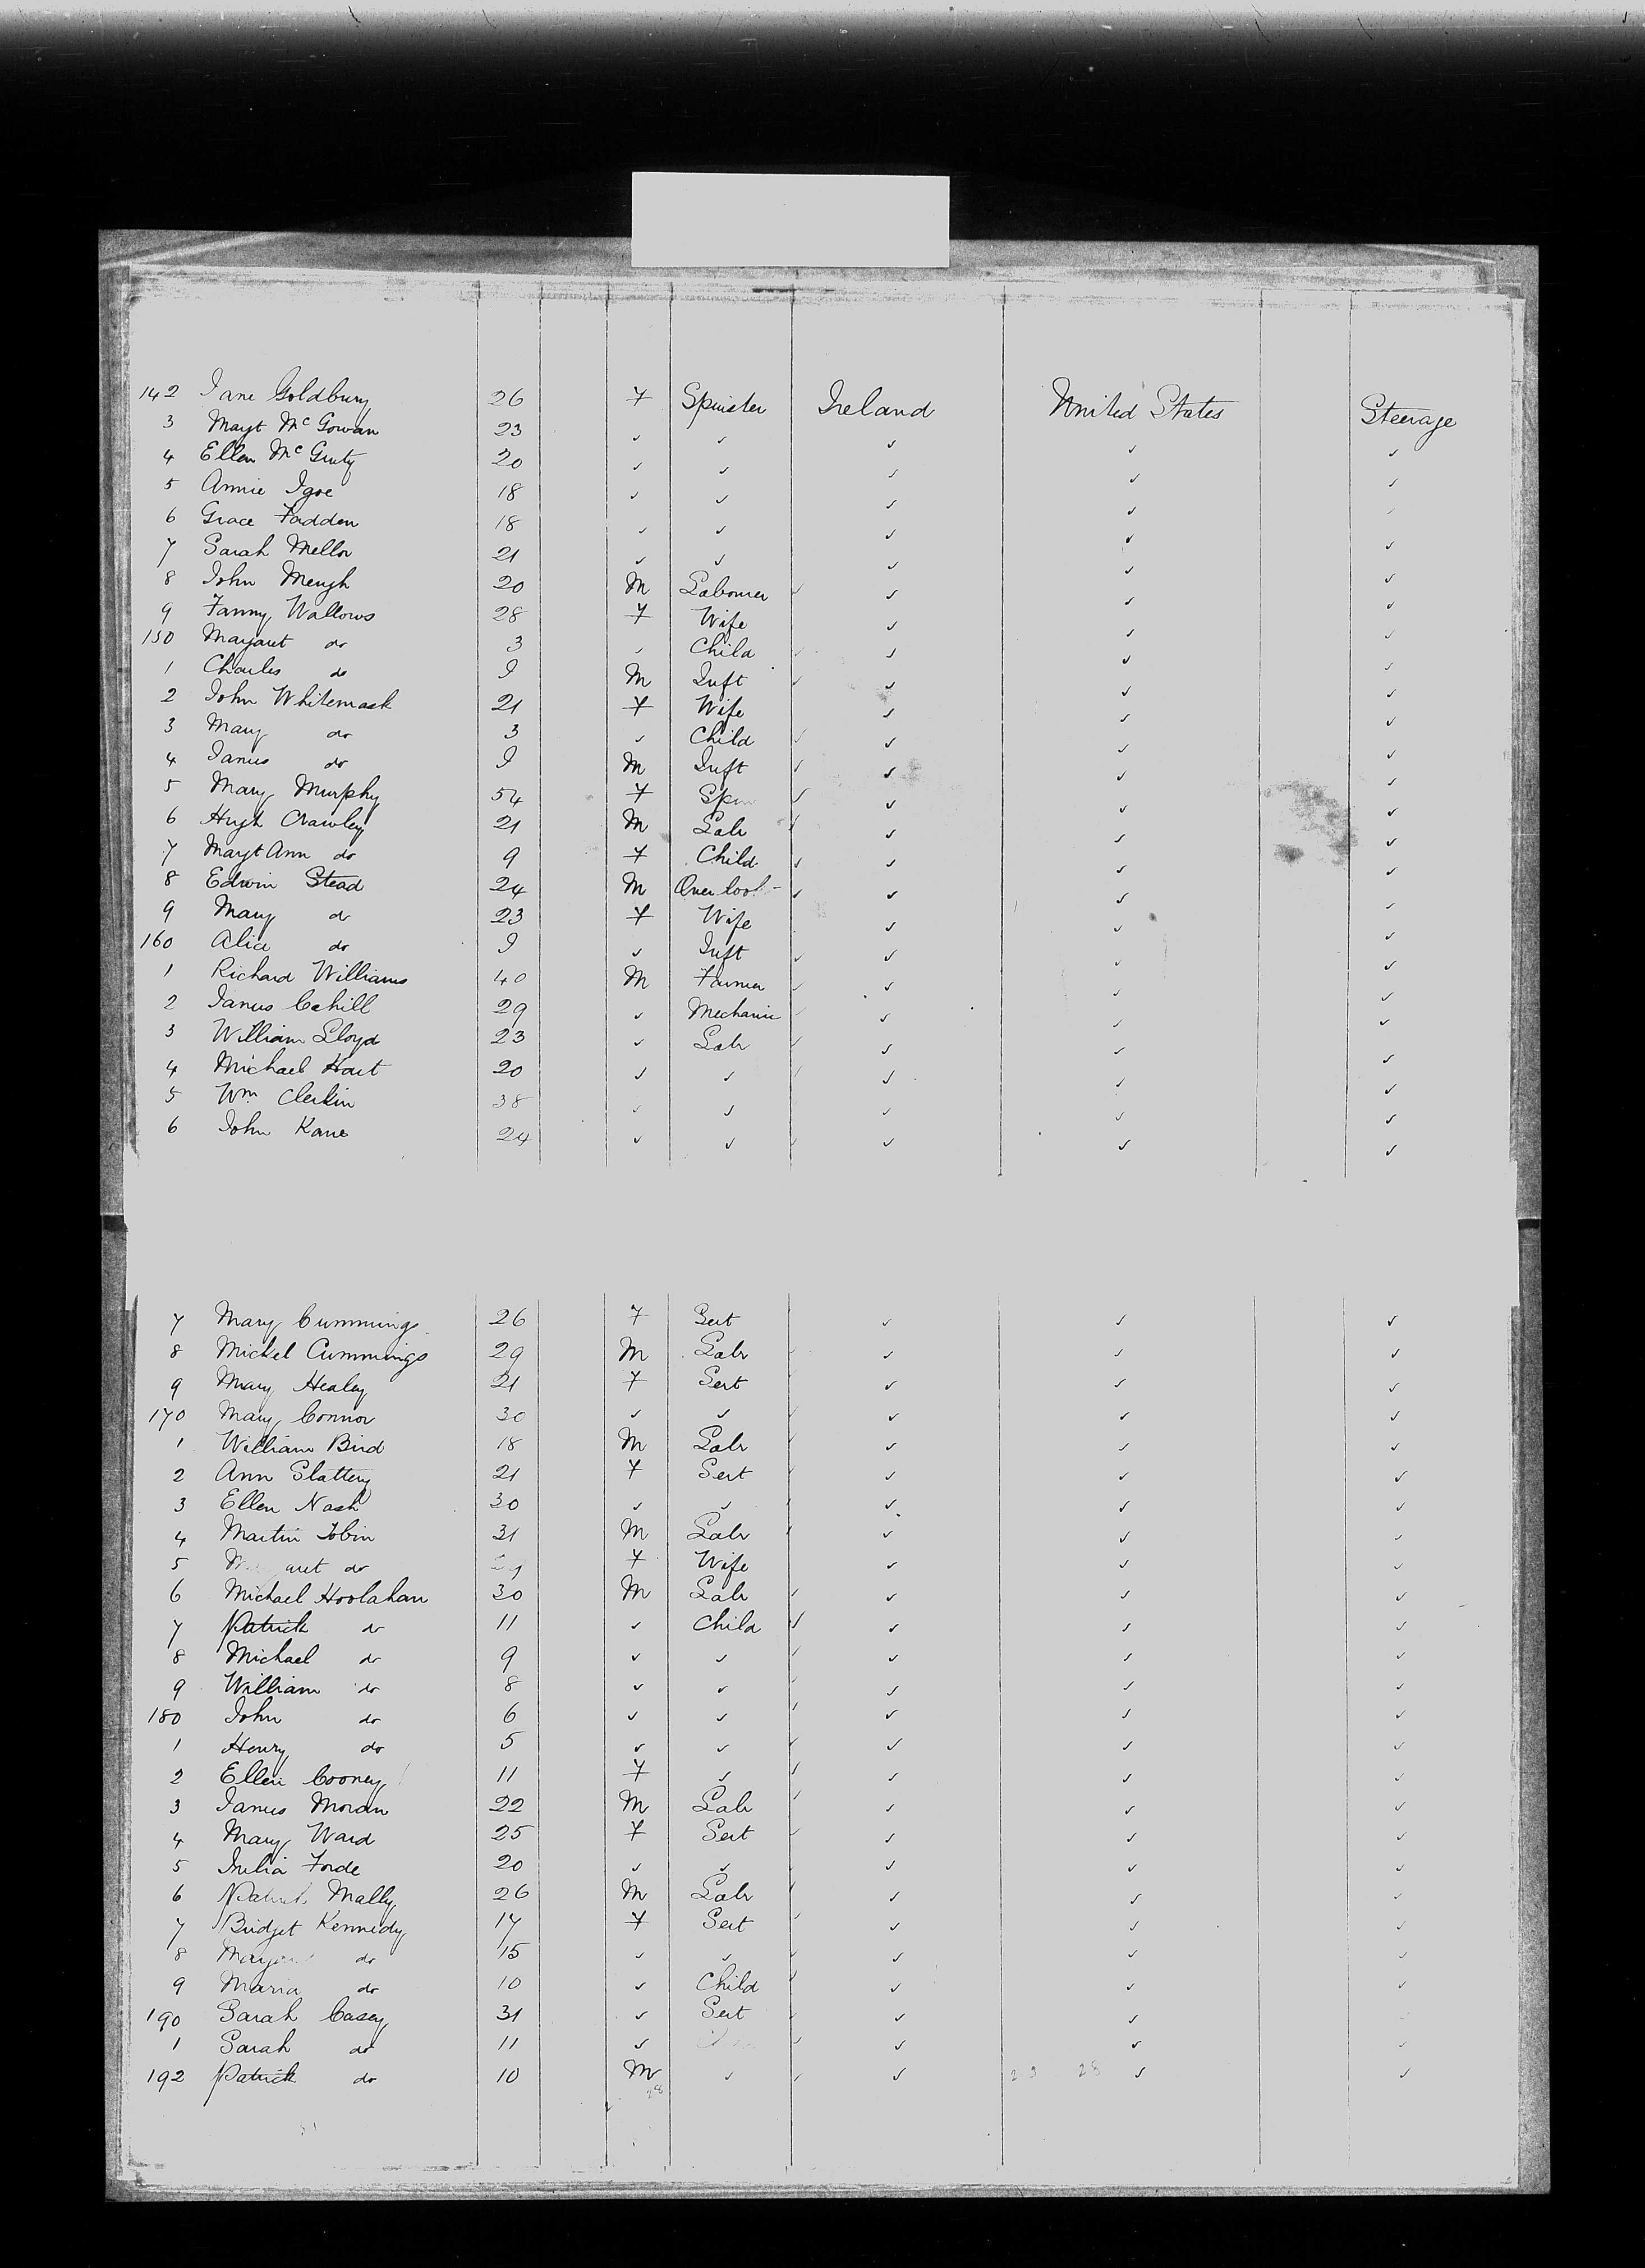 142 Jane Goldbury 26 F Spinster Ireland United States Steerage
3 Margt McGowan 23 ✓ ✓ ✓ ✓ ✓
4 Ellen McGinty 20 ✓ ✓ ✓ ✓ ✓
5 Annie Igoe 18 ✓ ✓ ✓ ✓ ✓
6 Grace Fadden 18 ✓ ✓ ✓ ✓ ✓
7 Sarah Mellor 21 ✓ ✓ ✓ ✓ ✓
8 John Meugh 20 M Labourer ✓ ✓ ✓
9 Fanny Wallows 28 F Wife ✓ ✓ ✓
150 Margaret do 3 ✓ Child ✓ ✓ ✓
1 Charles do I M Inft ✓ ✓ ✓
2 John Whitemask 21 F Wife ✓ ✓ ✓
3 Mary do 3 ✓ Child ✓ ✓ ✓
4 James do I M Inft ✓ ✓ ✓
5 Mary Murphy 54 F Spin ✓ ✓ ✓
6 Hugh Crawley 21 M Labr ✓ ✓ ✓
7 Margt Ann do 9 F Child ✓ ✓ ✓
8 Edwin Stead 24 M Over look- ✓ ✓ ✓
9 Mary do 23 F Wife ✓ ✓ ✓
160 Alice do I ✓ Inft ✓ ✓ ✓
1 Richard Williams 40 M Farmer ✓ ✓ ✓
2 James Cahill 29 ✓ Mechanic ✓ ✓ ✓
3 William Lloyd 23 ✓ Labr ✓ ✓ ✓
4 Michael Hart 20 ✓ ✓ ✓ ✓ ✓
5 Wm Clerkin 38 ✓ ✓ ✓ ✓ ✓
6 John Kane 24 ✓ ✓ ✓ ✓ ✓
7 Mary Cummings 26 F Sert ✓ ✓ ✓
8 Mickel Cummings 29 M Labr ✓ ✓ ✓
9 Mary Healey 21 F Sert ✓ ✓ ✓
170 Mary Connor 30 ✓ ✓ ✓ ✓ ✓
1 William Bird 18 M Labr ✓ ✓ ✓
2 Ann Slattery 21 F Sert ✓ ✓ ✓
3 Ellen Nash 30 ✓ ✓ ✓ ✓ ✓
4 Martin Tobin 31 M Labr ✓ ✓ ✓
5 do F Wife ✓ ✓ ✓
6 Michael Hoolahan 30 M Labr ✓ ✓ ✓
7 Patrick do 11 ✓ Child ✓ ✓ ✓
8 Michael do 9 ✓ ✓ ✓ ✓ ✓
9 William do 8 ✓ ✓ ✓ ✓ ✓
180 John do 6 ✓ ✓ ✓ ✓ ✓
1 Henry do 5 ✓ ✓ ✓ ✓ ✓
2 Ellen Cooney 11 F ✓ ✓ ✓ ✓
3 James Moran 22 M Labr ✓ ✓ ✓
4 Mary Ward 25 F Sert ✓ ✓ ✓
5 Julia Forde 20 ✓ ✓ ✓ ✓ ✓
6 Patrick Mally 26 M Labr ✓ ✓ ✓
7 Bridget Kennedy 17 F Sert ✓ ✓ ✓
8 Margaret do 15 ✓ ✓ ✓ ✓ ✓
9 Maria do 10 ✓ Child ✓ ✓ ✓
190 Sarah Casey 31 ✓ Sert ✓ ✓ ✓
1 Sarah do 11 ✓ ✓ ✓ ✓
192 Patrick do 10 M ✓ ✓ ✓ ✓